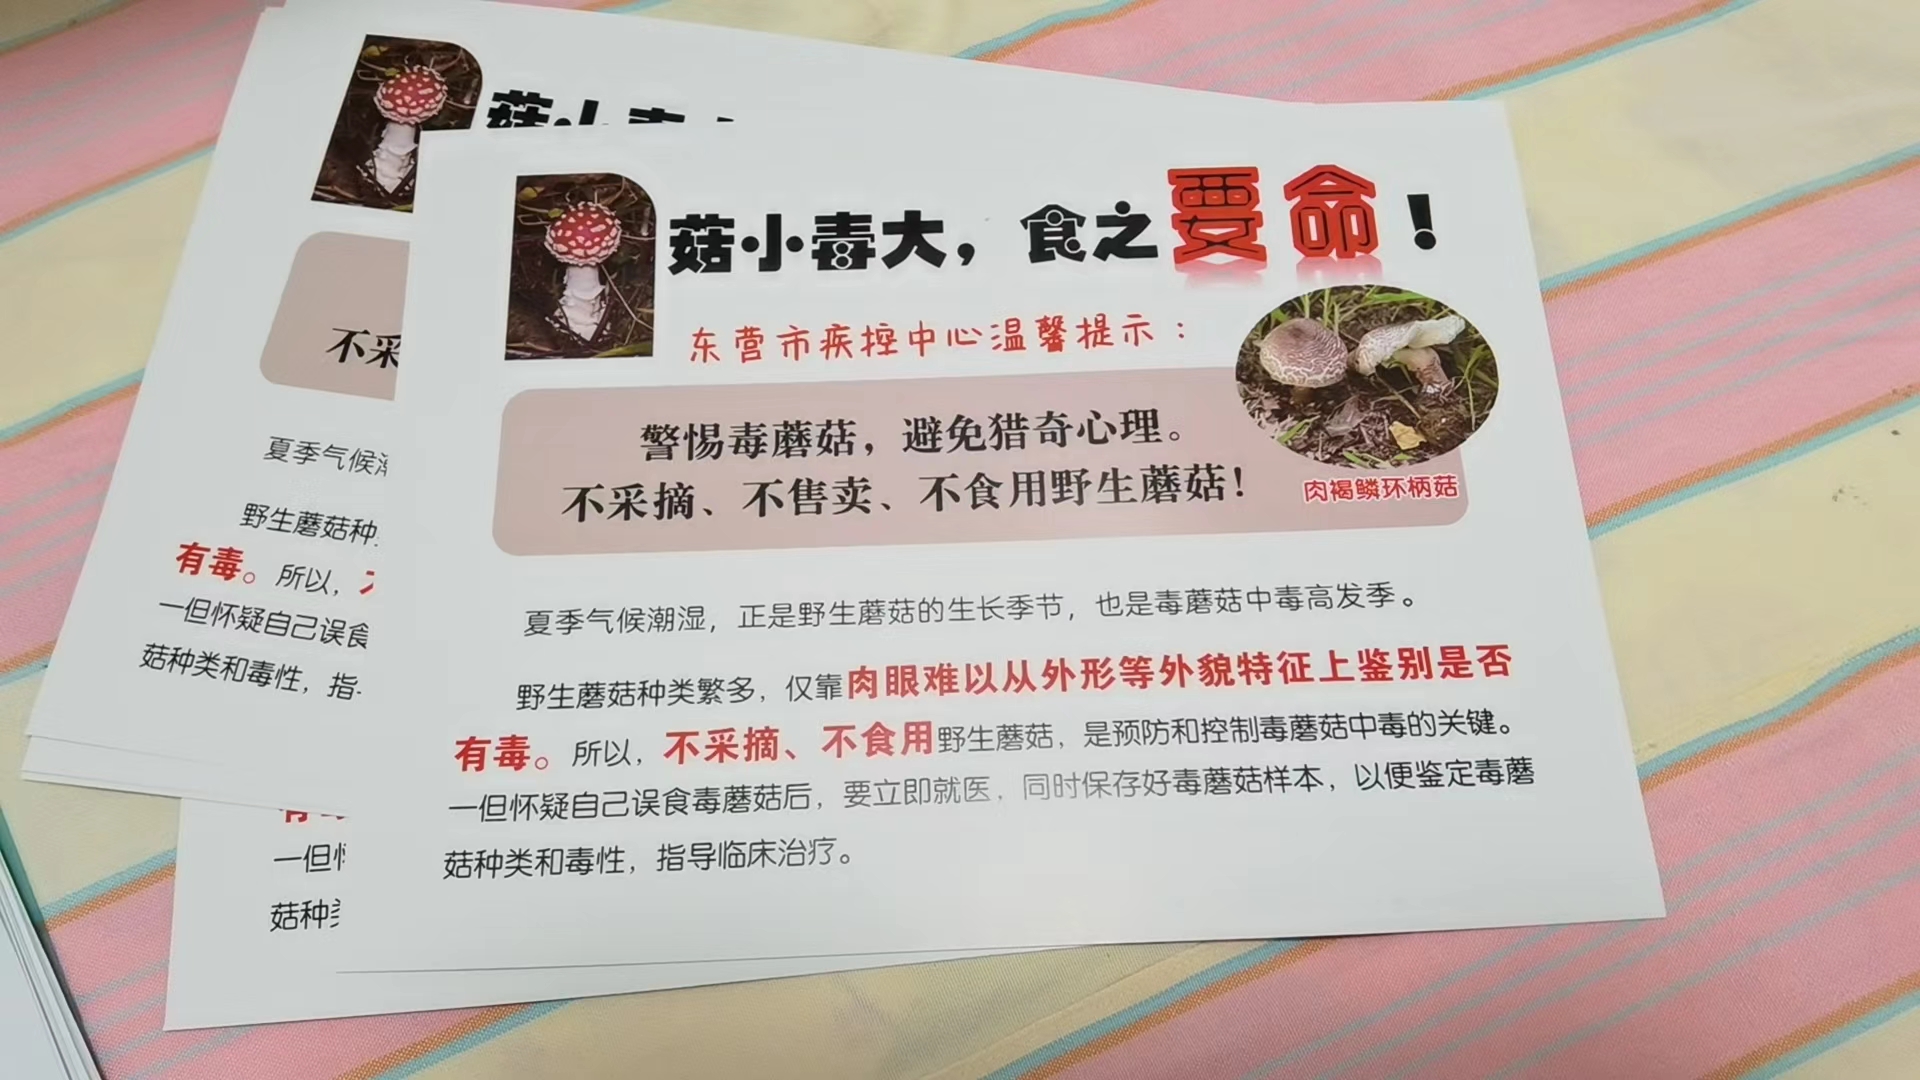 菇小毒大，食之要命！
东营市疾控中心温馨提示：
警惕毒蘑菇，避免猎奇心理。
不采摘、不售卖、不食用野生蘑菇！
肉褐鳞环柄菇
夏季气候潮湿，正是野生蘑菇的生长季节，也是毒蘑菇中毒高发季。
野生蘑菇种类繁多，仅靠肉眼难以从外形等外貌特征上鉴别是否
有毒。所以，不采摘、不食用野生蘑菇，是预防和控制毒蘑菇中毒的关键。
一但怀疑自己误食毒蘑菇后，要立即就医，同时保存好毒蘑菇样本，以便鉴定毒蘑
菇种类和毒性，指导临床治疗。
菇小毒
不采
夏季气候
野生蘑菇种
有毒。所以，
一但怀疑自己误食
菇种类和毒性，指
一但
菇种